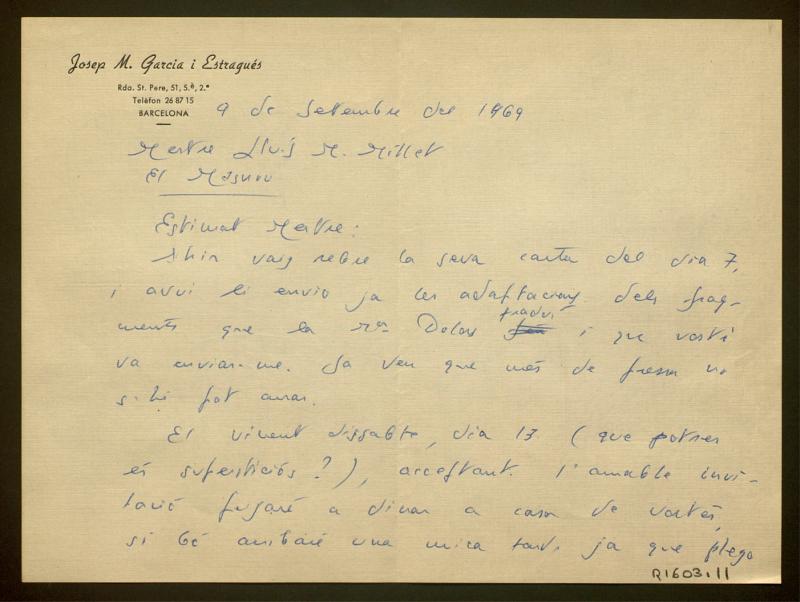 Josep M. Garcia i Estragués
Rda. St. Pere, 51, 5.è, 2.ª
Telèfon 26 87 15
BARCELONA
9 de setembre del 1969
Mestre Lluís M. Millet
El Masnou
Estimat Mestre:
Ahir vaig rebre la seva carta del dia 7,
i avui li envio ja les adaptacions dels frag-
ments que la Dolors traduí i que vostè
va enviar-me. Ja veu que més de pressa no
s'hi pot anar.
El vinent dissabte, dia 13 (que potser
és supersticiós?), acceptant l'amable invi-
tació pujaré a dinar a casa de vostès,
si bé arribaré una mica tard, ja que plego
R1603.11